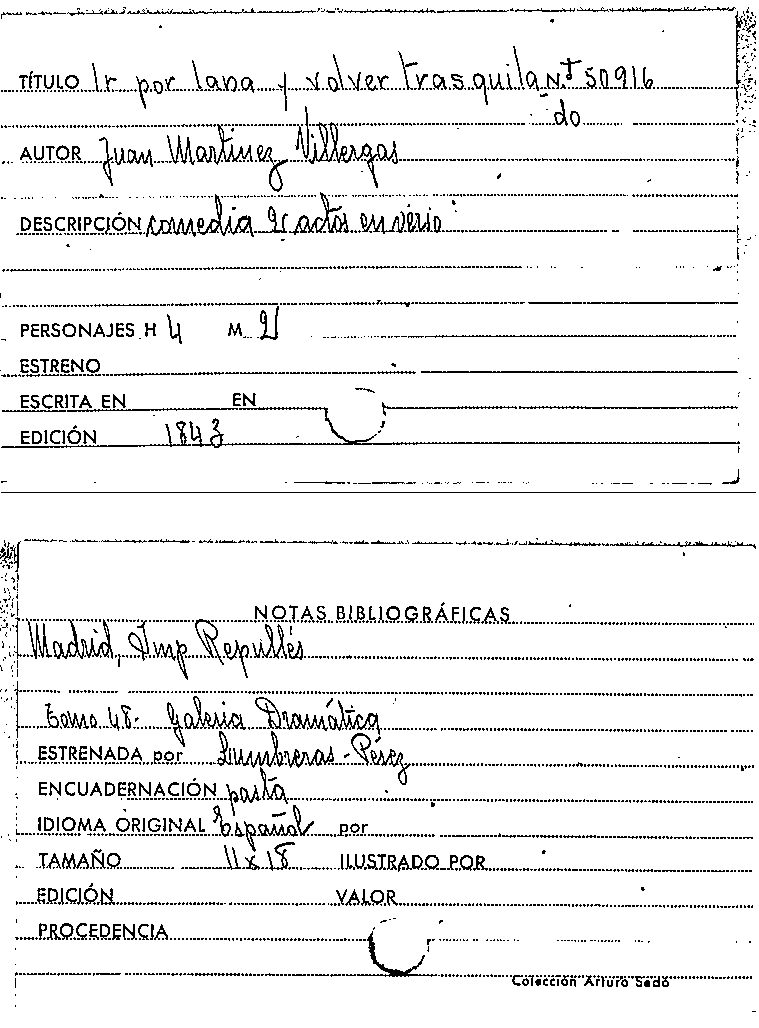 TÍTULO Ir por lana y volver trasquila N.† 50916
do
AUTOR Juan Martinez Villergas
DESCRIPCIÓN comedia 2 actos en verso
PERSONAJES H 4 M 2
ESTRENO
ESCRITA EN EN
EDICIÓN 1843
NOTAS BIBLIOGRÁFICAS
Madrid, Imp Repullés
Tomo 48- Galeria Dramática
ESTRENADA por Lumbreras-Pérez
ENCUADERNACIÓN pasta
IDIOMA ORIGINAL Español por
TAMAÑO 11 x 18 ILUSTRADO POR
EDICIÓN VALOR
PROCEDENCIA
Colección Arturo Sedó